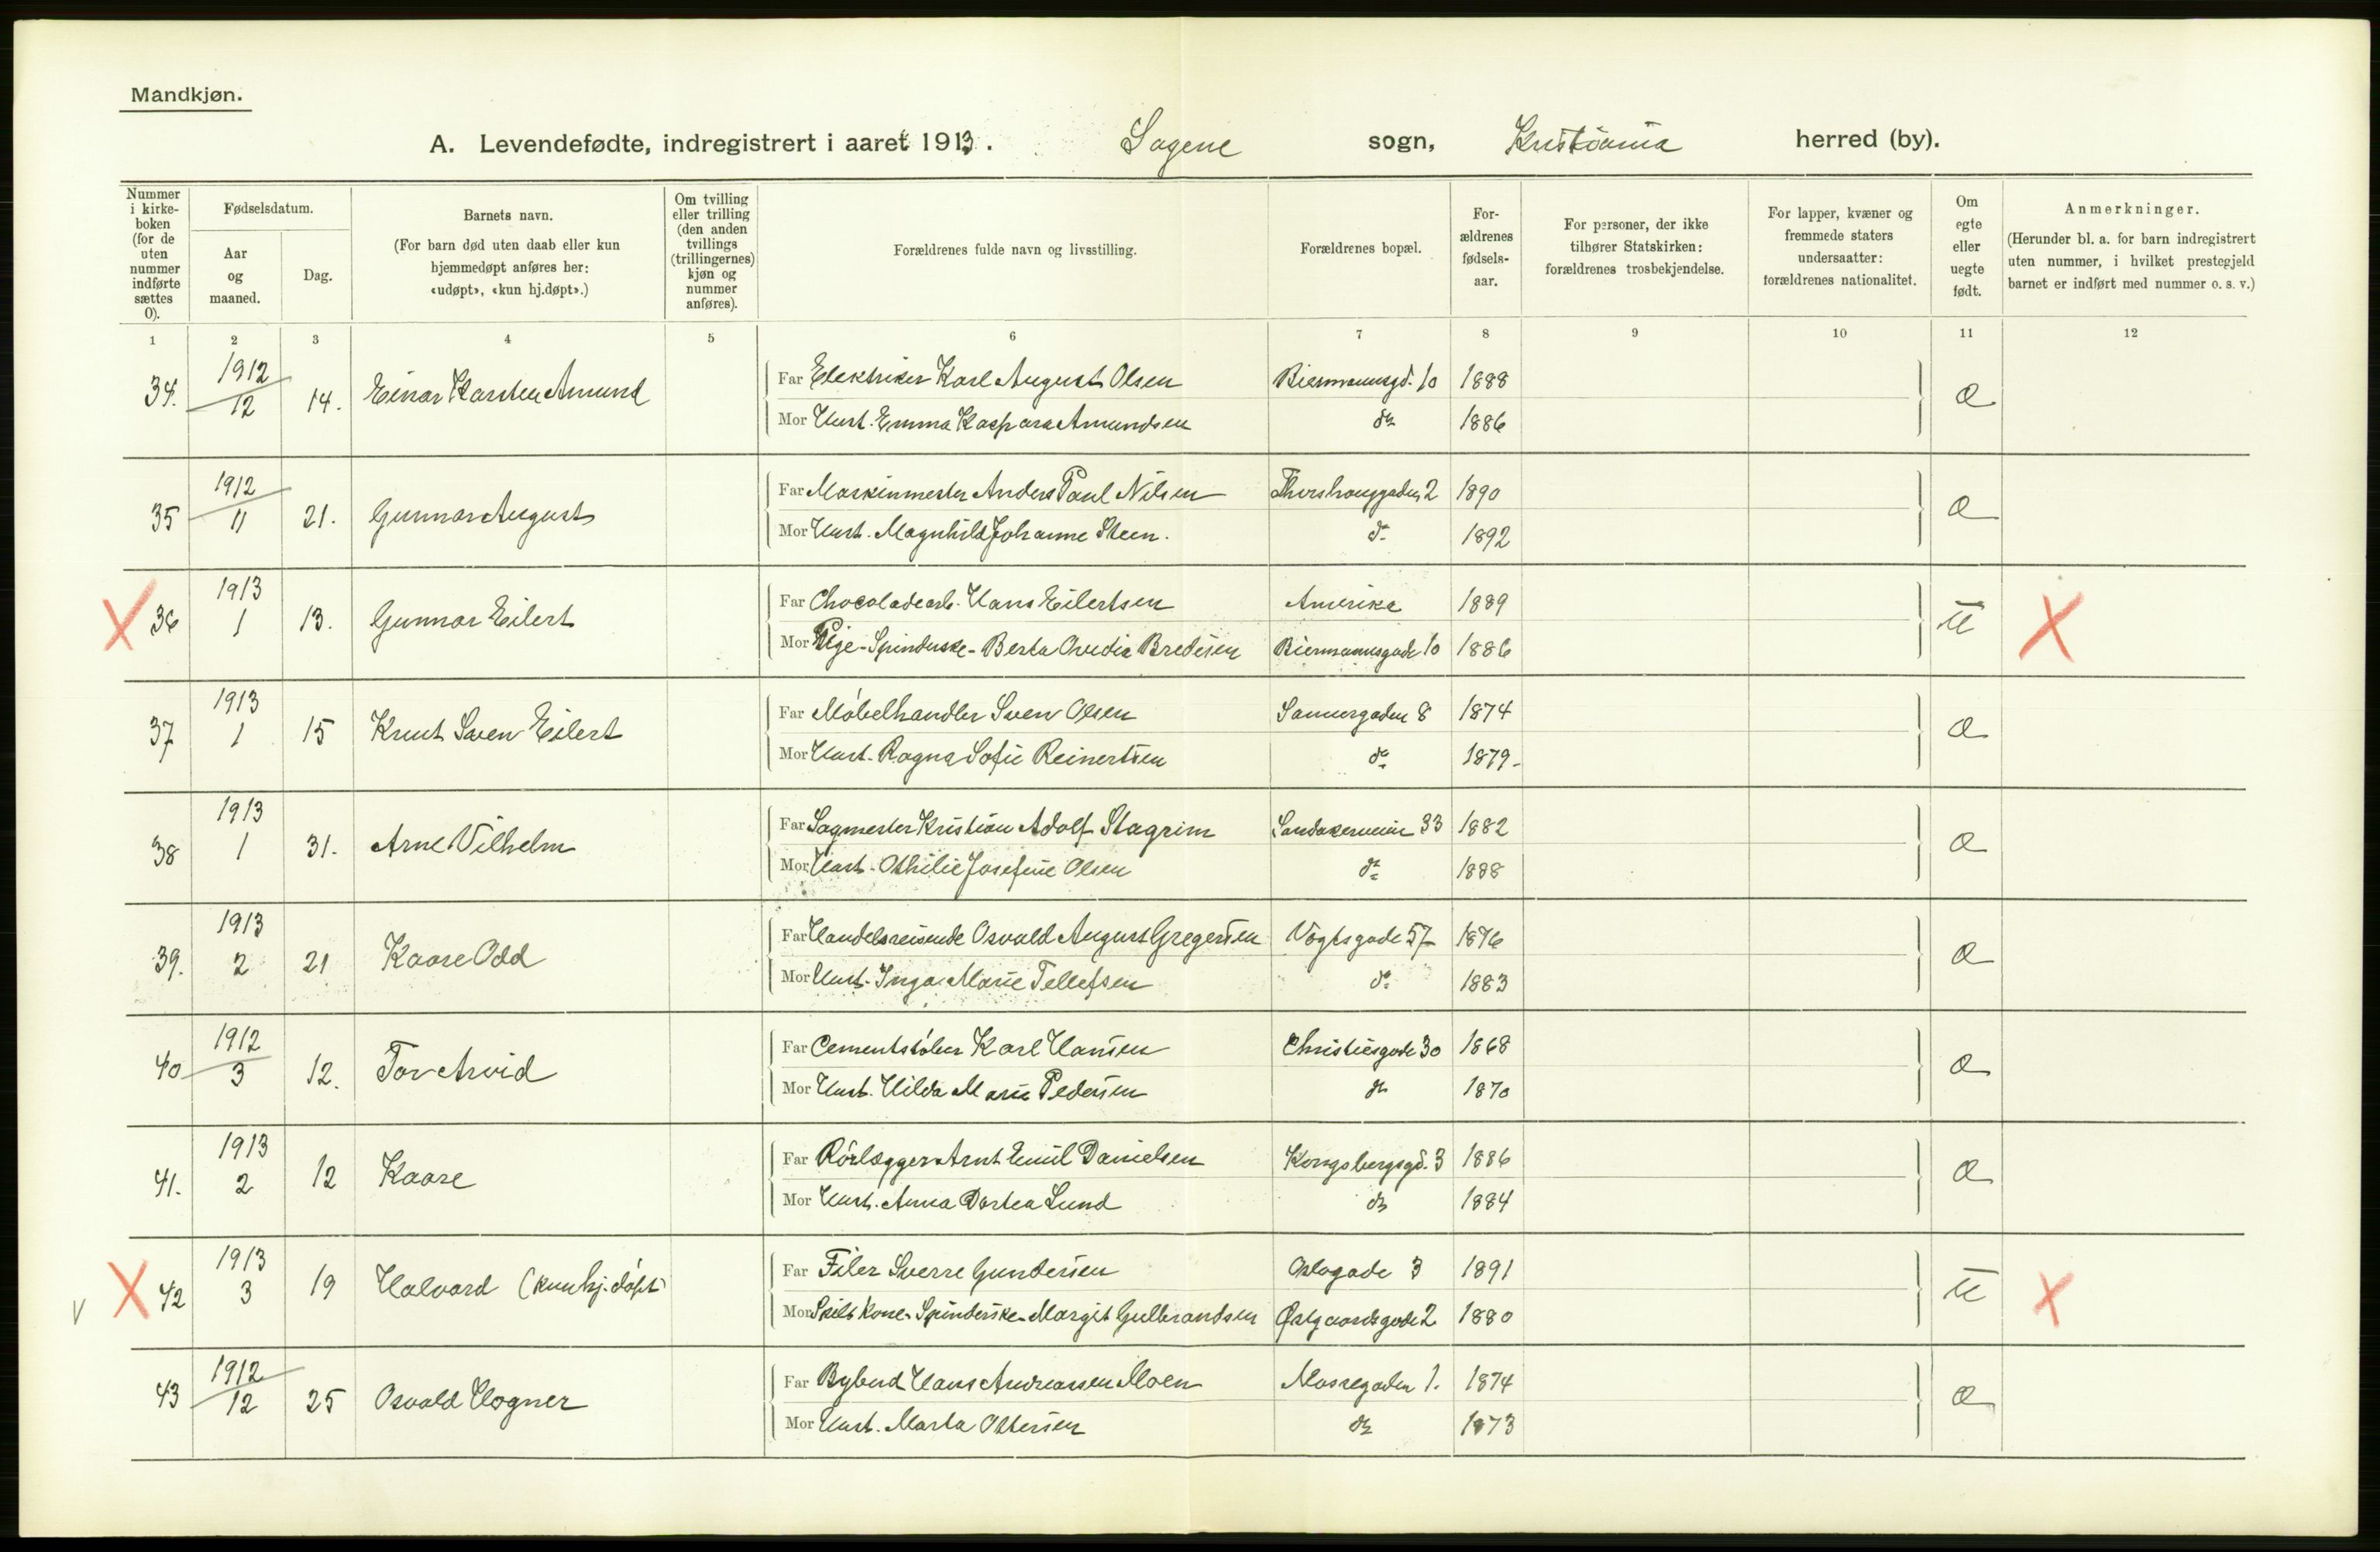 Mandkjøn.
A. Levendefødte, indregistrert i aaret 1913. Sagene sogn, Kristiania herred (by).
Nummer i kirke-boken (for de uten nummer indførte sættes 0).
Fødselsdatum.
Aar og maaned.
Dag.
Barnets navn.
(For barn død uten daab eller kun hjemmedøpt anføres her: «udøpt», «kun hj.døpt».)
Om tvilling eller trilling (den anden tvillings (trillingernes) kjøn og nummer anføres).
Forældrenes fulde navn og livsstilling.
Forældrenes bopæl.
For-ældrenes fødsels-aar.
For personer, der ikke tilhører Statskirken: forældrenes trosbekjendelse.
For lapper, kvæner og fremmede staters undersaatter: forældrenes nationalitet.
Om egte eller uegte født.
Anmerkninger.
(Herunder bl. a. for barn indregistrert uten nummer, i hvilket prestegjeld barnet er indført med nummer o. s. v.)
1 2 3 4 5 6 7 8 9 10 11 12
34. 1912 12 14. Einar Karsten Amund Far Elektriker Karl August Olsen Biermannsgd. 10 1888
Mor Hust. Emma Kaspara Amundsen do 1886
35 1912 11 21. Gunnar August Far Maskinmester Anders Paul Nilsen Thorshauggaden 2 1890
Mor Hust. Magnhild Johanne Steen. do 1892
X 36 1913 1 13. Gunnar Eilert Far Chocoladearb. Hans Eilertsen Amerika 1889 u X
Mor Pige - Spinderske - Berta Ovedia Bredesen Biermannsgade 10 1886
37 1913 1 15 Knut Sven Eilert Far Møbelhandler Sven Olsen Sannergaden 8 1874
Mor Hust. Ragna Sofie Reinertsen do 1879.
38 1913 1 31. Arne Vilhelm Far Sagmester Kristian Adolf Stagrim Sandakerveien 33 1882
Mor Hust. Othilie Josefine Olsen do 1888
39. 1913 2 21 Kaare Odd Far Handelsreisende Osvald August Gregersen Vogtsgade 57 1876
Mor Hust. Inga Marie Tellefsen do 1883
40 1912 3 12. Tor Arvid Far Cementstøber Karl Hansen Christiesgade 30 1868
Mor Hust. Hilda Marie Pedersen do 1870
41. 1913 2 12 Kaare Far Rørlægger Arnt Emil Danielsen Kongsbergsgd. 3 1886
Mor Hust. Anna Dortea Lund do 1884
V X 42 1913 3 19 Halvard (kun hj. døpt) Far Filer Sverre Gundersen Oslogade 3 1891 u X
Mor Skilt kone - Spinderske - Margit Gulbrandsen Østgaardsgade 2 1880
43 1912 12 25 Osvald Hogner Far Bybud Hans Andreassen Moen Mossegaden 1. 1874
Mor Hust. Marta Ottersen do 1873